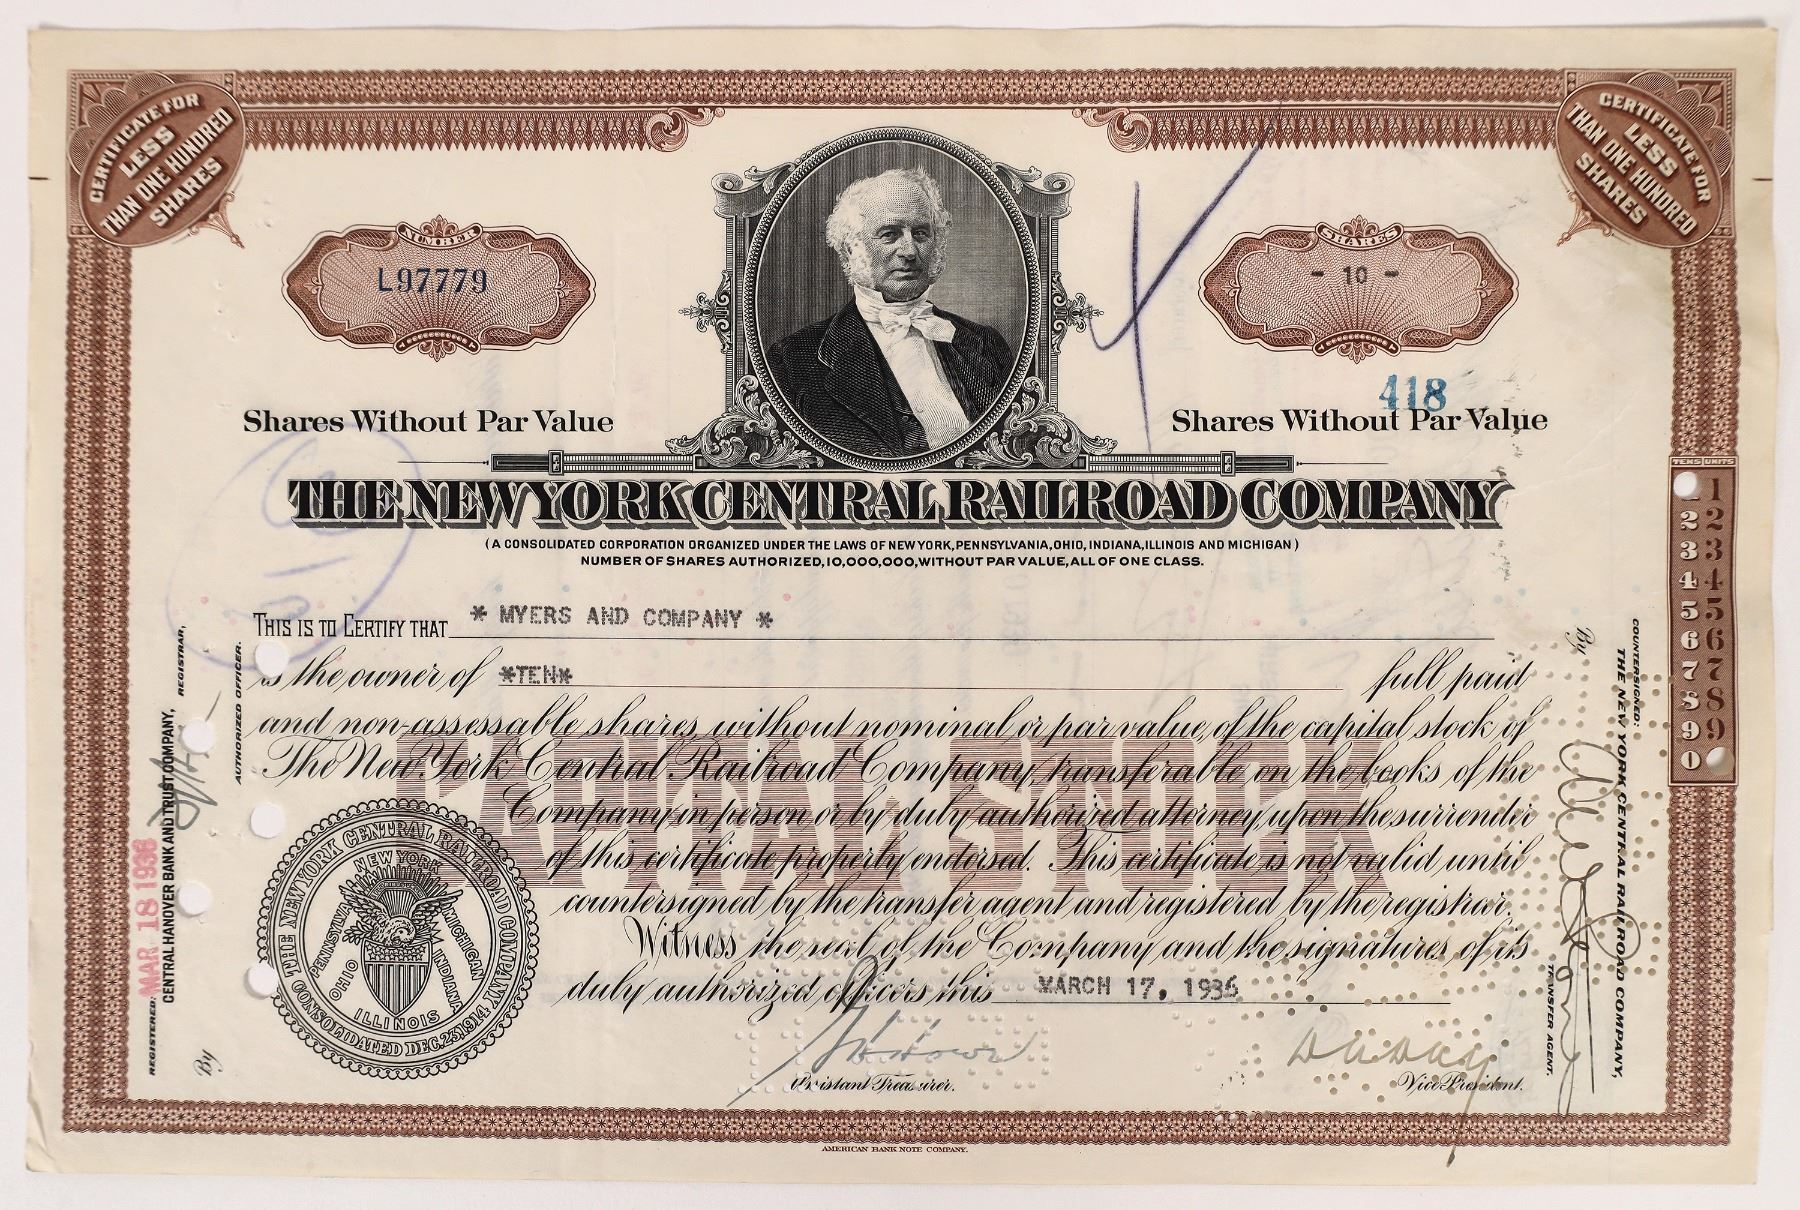 CERTIFICATE FOR
LESS
THAN ONE HUNDRED
SHARES
CERTIFICATE FOR
LESS
THAN ONE HUNDRED
SHARES
NUMBER
L97779
SHARES
- 10 -
418
Shares Without Par Value
Shares Without Par Value
THE NEW YORK CENTRAL RAILROAD COMPANY
(A CONSOLIDATED CORPORATION ORGANIZED UNDER THE LAWS OF NEW YORK, PENNSYLVANIA, OHIO, INDIANA, ILLINOIS AND MICHIGAN)
NUMBER OF SHARES AUTHORIZED, 10,000,000, WITHOUT PAR VALUE, ALL OF ONE CLASS.
THIS IS TO CERTIFY THAT * MYERS AND COMPANY *
is the owner of *TEN* full paid
and non-assessable shares without nominal or par value, of the capital stock of
The New York Central Railroad Company, transferable on the books of the
Company in person or by duly authorized attorney, upon the surrender
of this certificate properly endorsed. This certificate is not valid until
countersigned by the transfer agent and registered by the registrar.
Witness the seal of the Company and the signatures of its
duly authorized officers this MARCH 17, 1936
CAPITAL STOCK
Assistant Treasurer.
Vice President.
THE NEW YORK CENTRAL RAILROAD COMPANY
CONSOLIDATED DEC. 23, 1914
NEW YORK
PENNSYLVANIA
MICHIGAN
OHIO
INDIANA
ILLINOIS
REGISTERED: MAR 18 1936
CENTRAL HANOVER BANK AND TRUST COMPANY,
REGISTRAR,
By
AUTHORIZED OFFICER.
COUNTERSIGNED:
THE NEW YORK CENTRAL RAILROAD COMPANY,
TRANSFER AGENT.
By
TENS UNITS
1
2 2
3 3
4 4
5 5
6 6
7 7
8 8
9 9
0
AMERICAN BANK NOTE COMPANY.